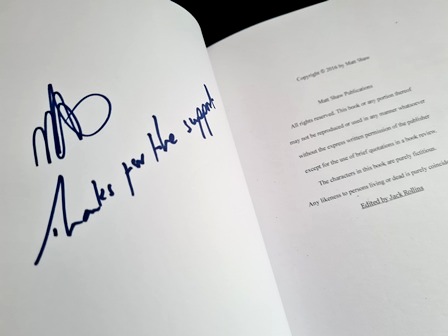 Thanks for the support
Copyright © 2016 by Matt Shaw
Matt Shaw Publications
All rights reserved. This book or any portion thereof
may not be reproduced or used in any manner whatsoever
without the express written permission of the publisher
except for the use of brief quotations in a book review.
The characters in this book are purely fictitious.
Any likeness to persons living or dead is purely coincide
Edited by Jack Rollins